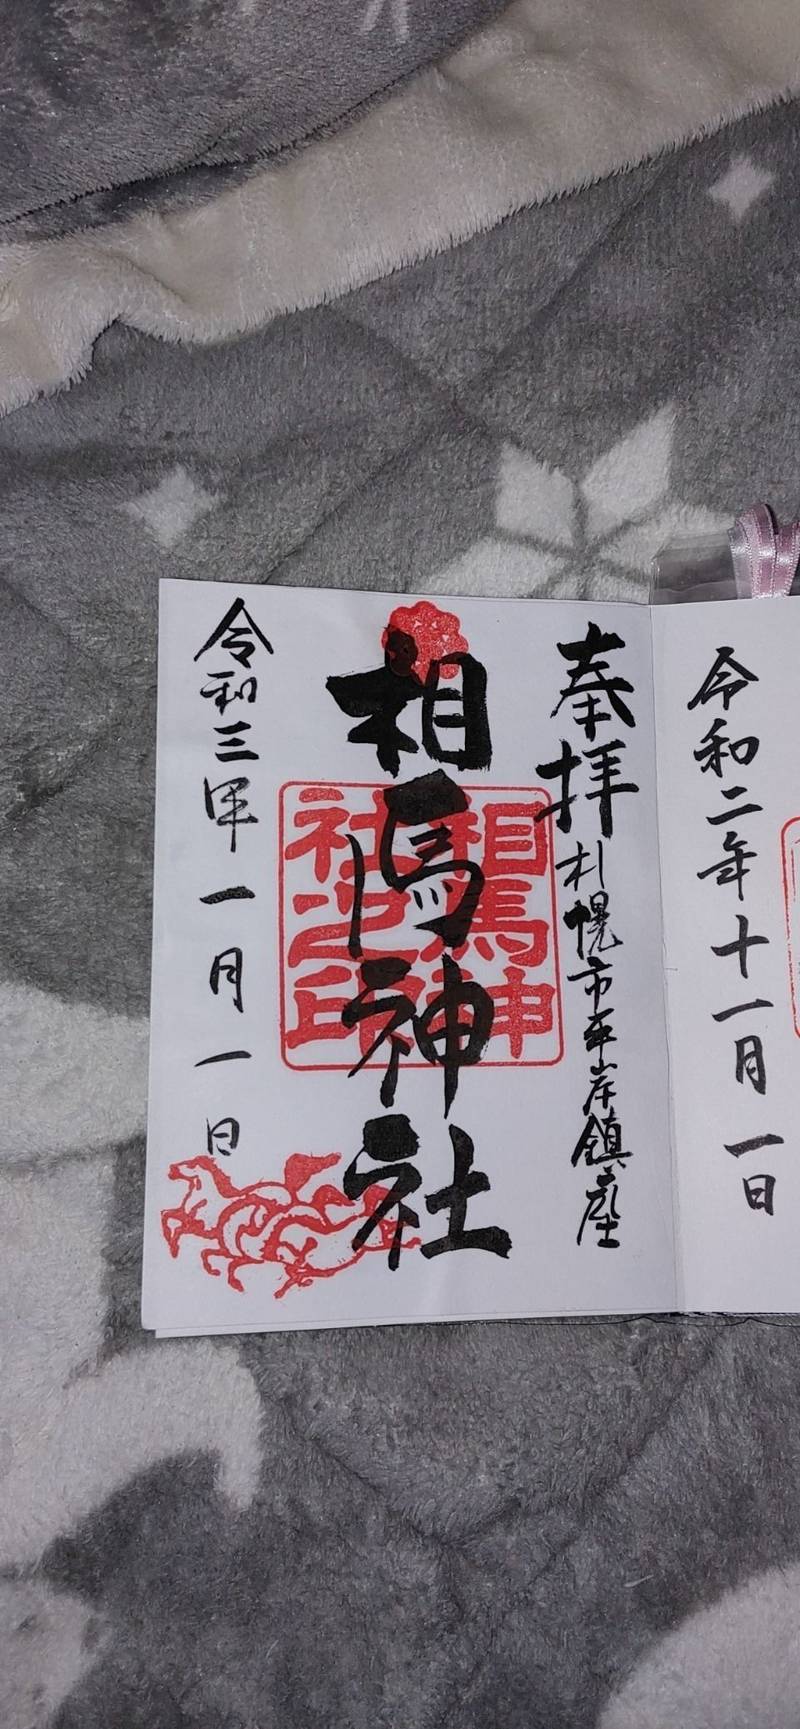 令和二年十一月一日
奉拝
札幌市平岸鎮座
相馬神社
相馬神
社之印
令和三年一月一日